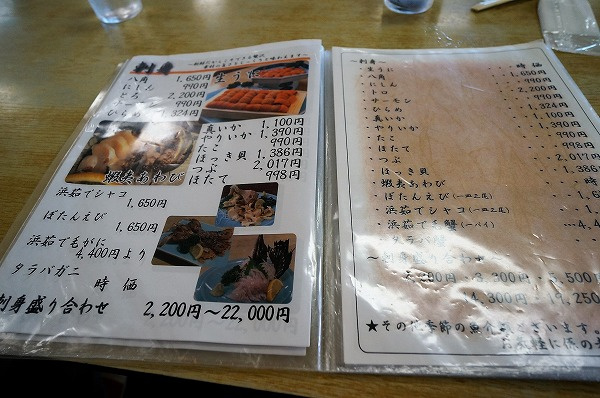 生うに
八角 1,650円
にしん 990円
とろ 2,200円
サーモン 990円
ひらめ 1,324円
真いか 1,100円
やりいか 1,390円
たこ 990円
ほっき貝 1,386円
つぶ 2,017円
ほたて 998円
蝦夷あわび
浜茹でシャコ
1,650円
ぼたんえび
1,650円
浜茹でもがに
4,400円より
タラバガニ
時価
刺身盛り合わせ 2,200円〜22,000円
〜刺身〜
・生うに 時価
・八角 1,650円
・にしん 990円
・トロ 2,200円
・サーモン 990円
・ひらめ 1,324円
・真いか 1,100円
・やりいか 1,390円
・たこ 990円
・ほたて 998円
・つぶ 2,017円
・ほっき貝 1,386円
・蝦夷あわび 時価
・ぼたんえび(一皿二尾) 1,650
・浜茹でシャコ(一皿二尾) 1,650
・浜茹で毛蟹(一パイ) 4,4
・タラバ蟹
〜刺身盛り合わせ〜
3,300円 5,500
14,300円 19,250
★その他季節の魚介 ございます。
お気軽に係の者